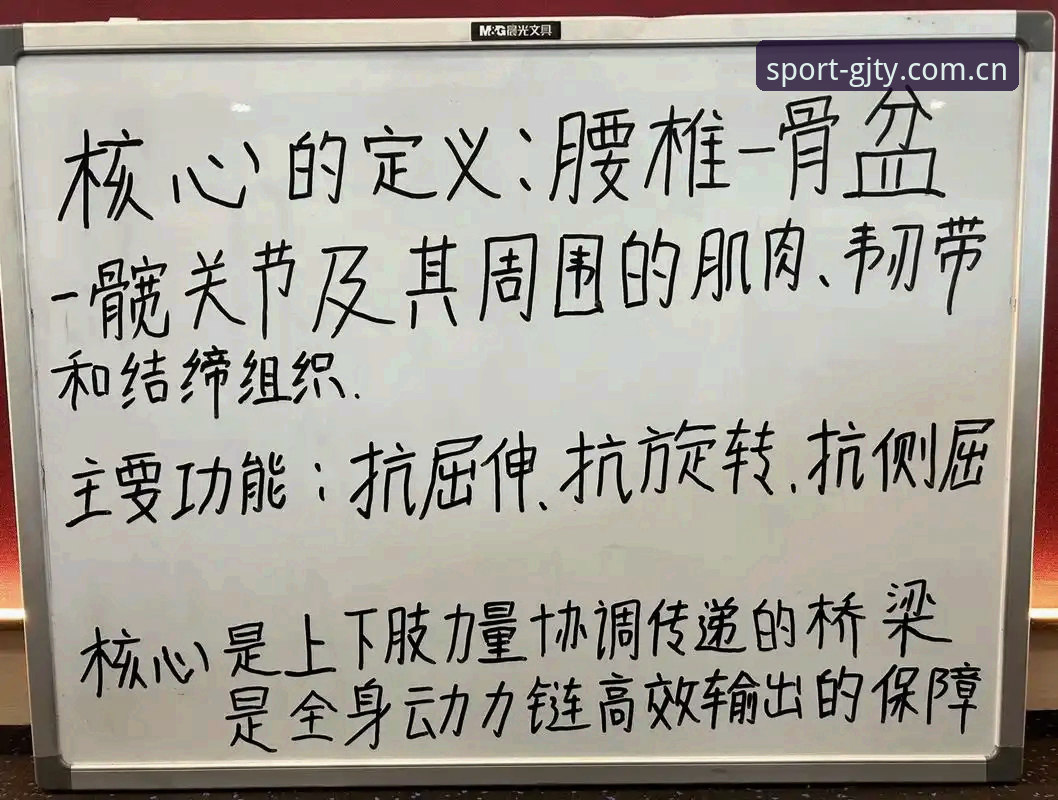 M&G晨光文具
sport-gjty.com.cn
核心的定义:腰椎-骨盆
-髋关节及其周围的肌肉、韧带
和结缔组织.
主要功能:抗屈伸、抗旋转、抗侧屈
核心是上下肢力量协调传递的桥梁
是全身动力链高效输出的保障